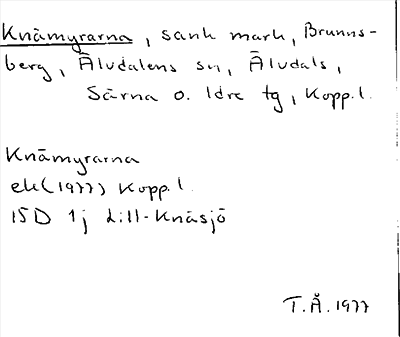 Knämyrarna, sank mark, Brunns-
berg, Älvdalens sn, Älvdals,
Särna o. Idre tg, Kopp.l.
Knämyrarna
ek(1977) Kopp.l.
15D 1j Lill-Knäsjö
T.Å.1977